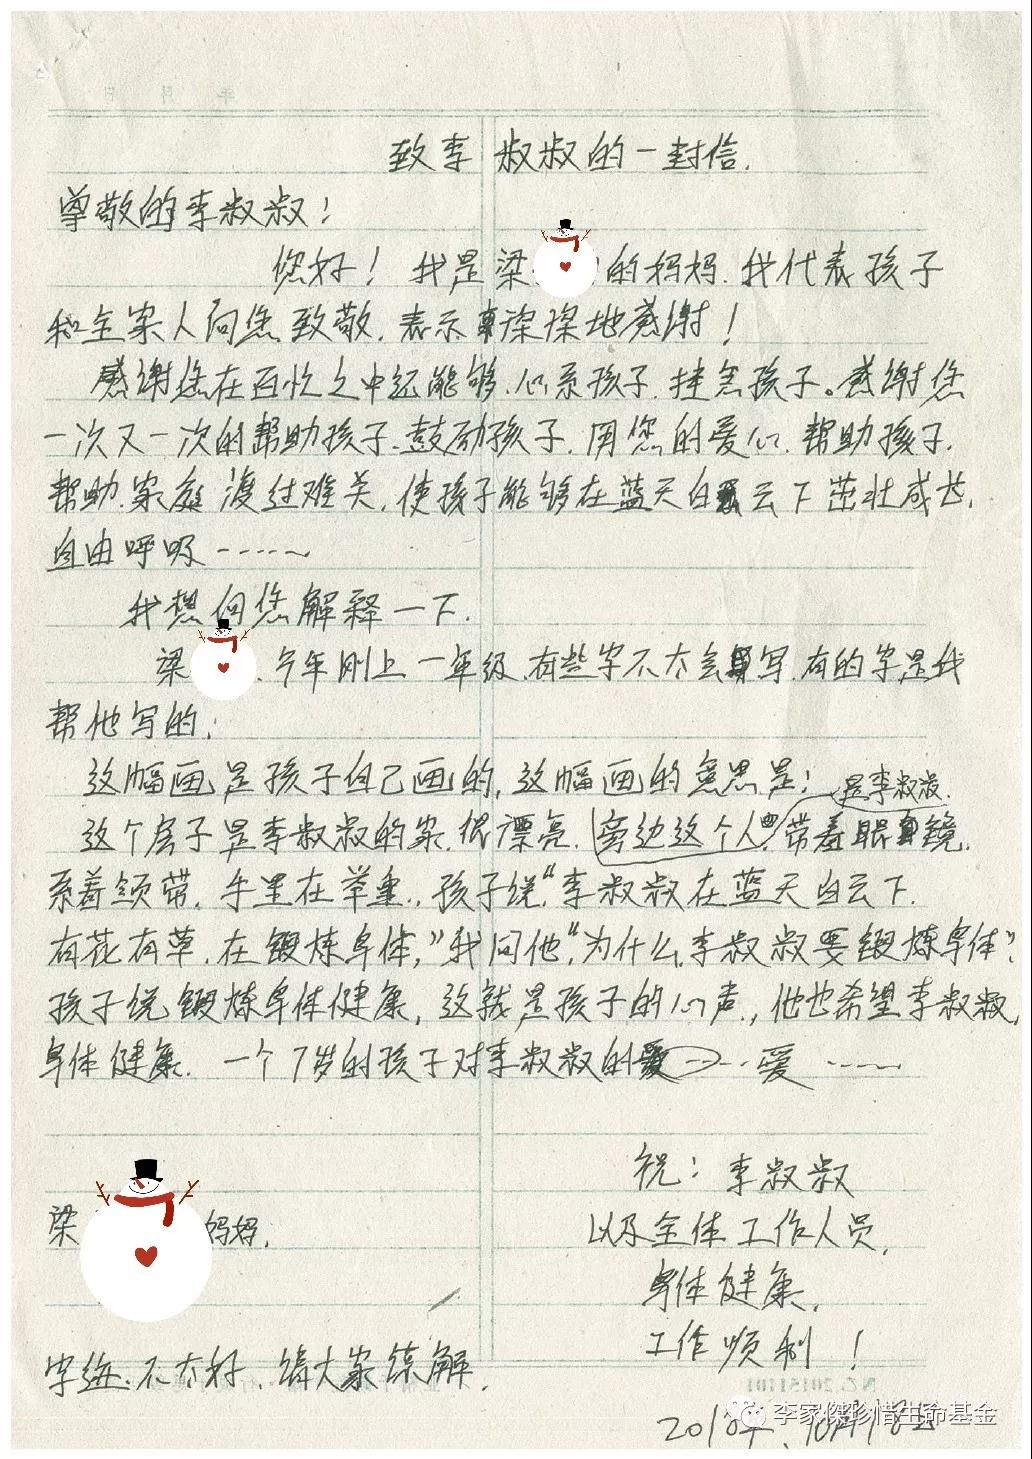 致李叔叔的一封信.
尊敬的李叔叔!
您好! 我是梁 的妈妈.我代表孩子
和全家人向您致敬.表示深深地感谢!
感谢您在百忙之中还能够.心系孩子.挂念孩子。感谢您
一次又一次的帮助孩子.鼓励孩子.用您的爱心.帮助孩子.
帮助.家庭渡过难关,使孩子能够在蓝天白云下茁壮成长.
自由呼吸……
我想向您解释一下.
梁 .今年刚上一年级.有些字不太会写.有的字是我
帮他写的.
这幅画是孩子自己画的,这幅画的意思是:
是李叔叔.
这个房子是李叔叔的家.很漂亮.旁边这个人.带着眼镜.
系着领带.手里在举重.,孩子说“李叔叔在蓝天白云下.
有花有草.在锻炼身体,”我问他“为什么.李叔叔要锻炼身体”
孩子说锻炼身体健康,这就是孩子的心声.,他也希望李叔叔,
身体健康.一个7岁的孩子对李叔叔的……爱……
祝:李叔叔
梁 妈妈.
以及全体工作人员,
身体健康.
工作顺利!
字迹.不太好、请大家谅解.
2018年.10月18日
李家傑珍惜生命基金